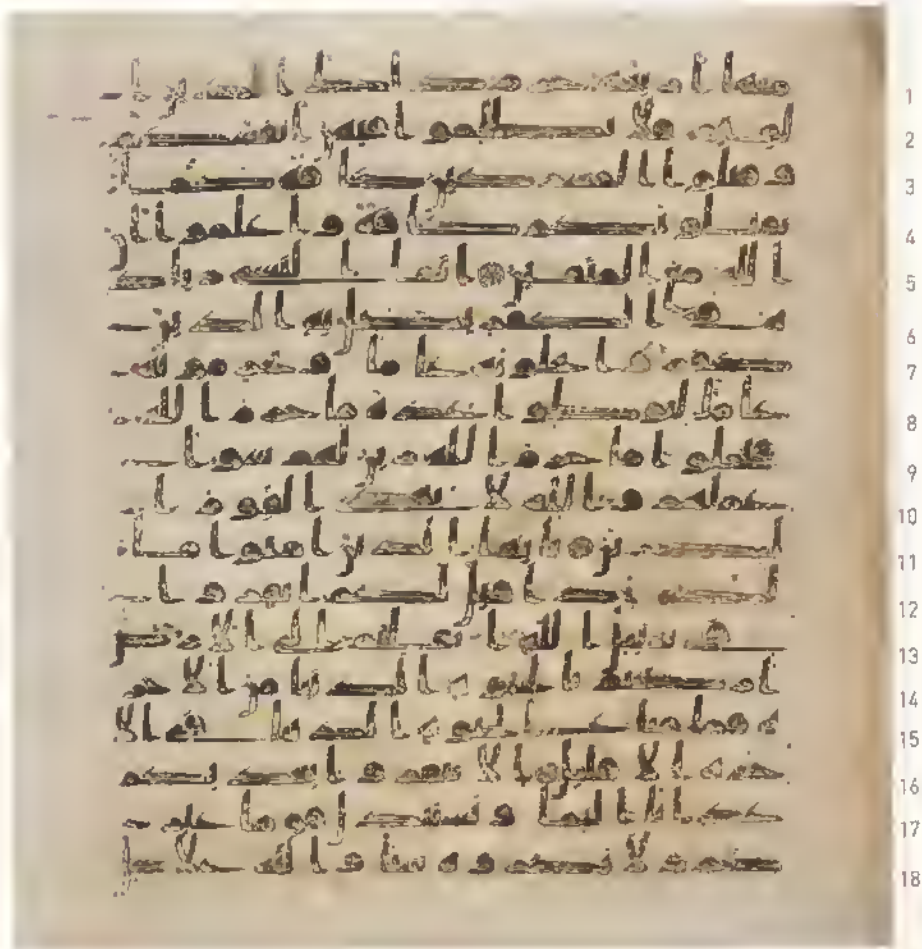 منها اربعة حرم ذلك الدين
القيم فلا تظلموا فيهن انفسكم
وقتلوا المشركين كافة كما
يقتلونكم كافة واعلموا ان
الله مع المتقين انما النسى زيا
دة فى الكفر يضل به الذين
كفروا يحلونه عاما ويحرمونه
عاما ليواطوا عدة ما حرم الله
فيحلوا ما حرم الله زين لهم سو
اعملهم والله لا يهدى القوم ا
لكفرين يايها الذين امنوا ما
لكم اذا قيل لكم انفروا
فى سبيل الله اثاقلتم الى الارض
ارضيتم بالحيوة الدنيا من الاخر
ة فما متع الحيوة الدنيا فى الا
خرة الا قليل الا تنفروا يعذبكم
عذابا اليما ويستبدل قوما غير
كم ولا تضروه شيا والله على كل
1
2
3
4
5
6
7
8
9
10
11
12
13
14
15
16
17
18